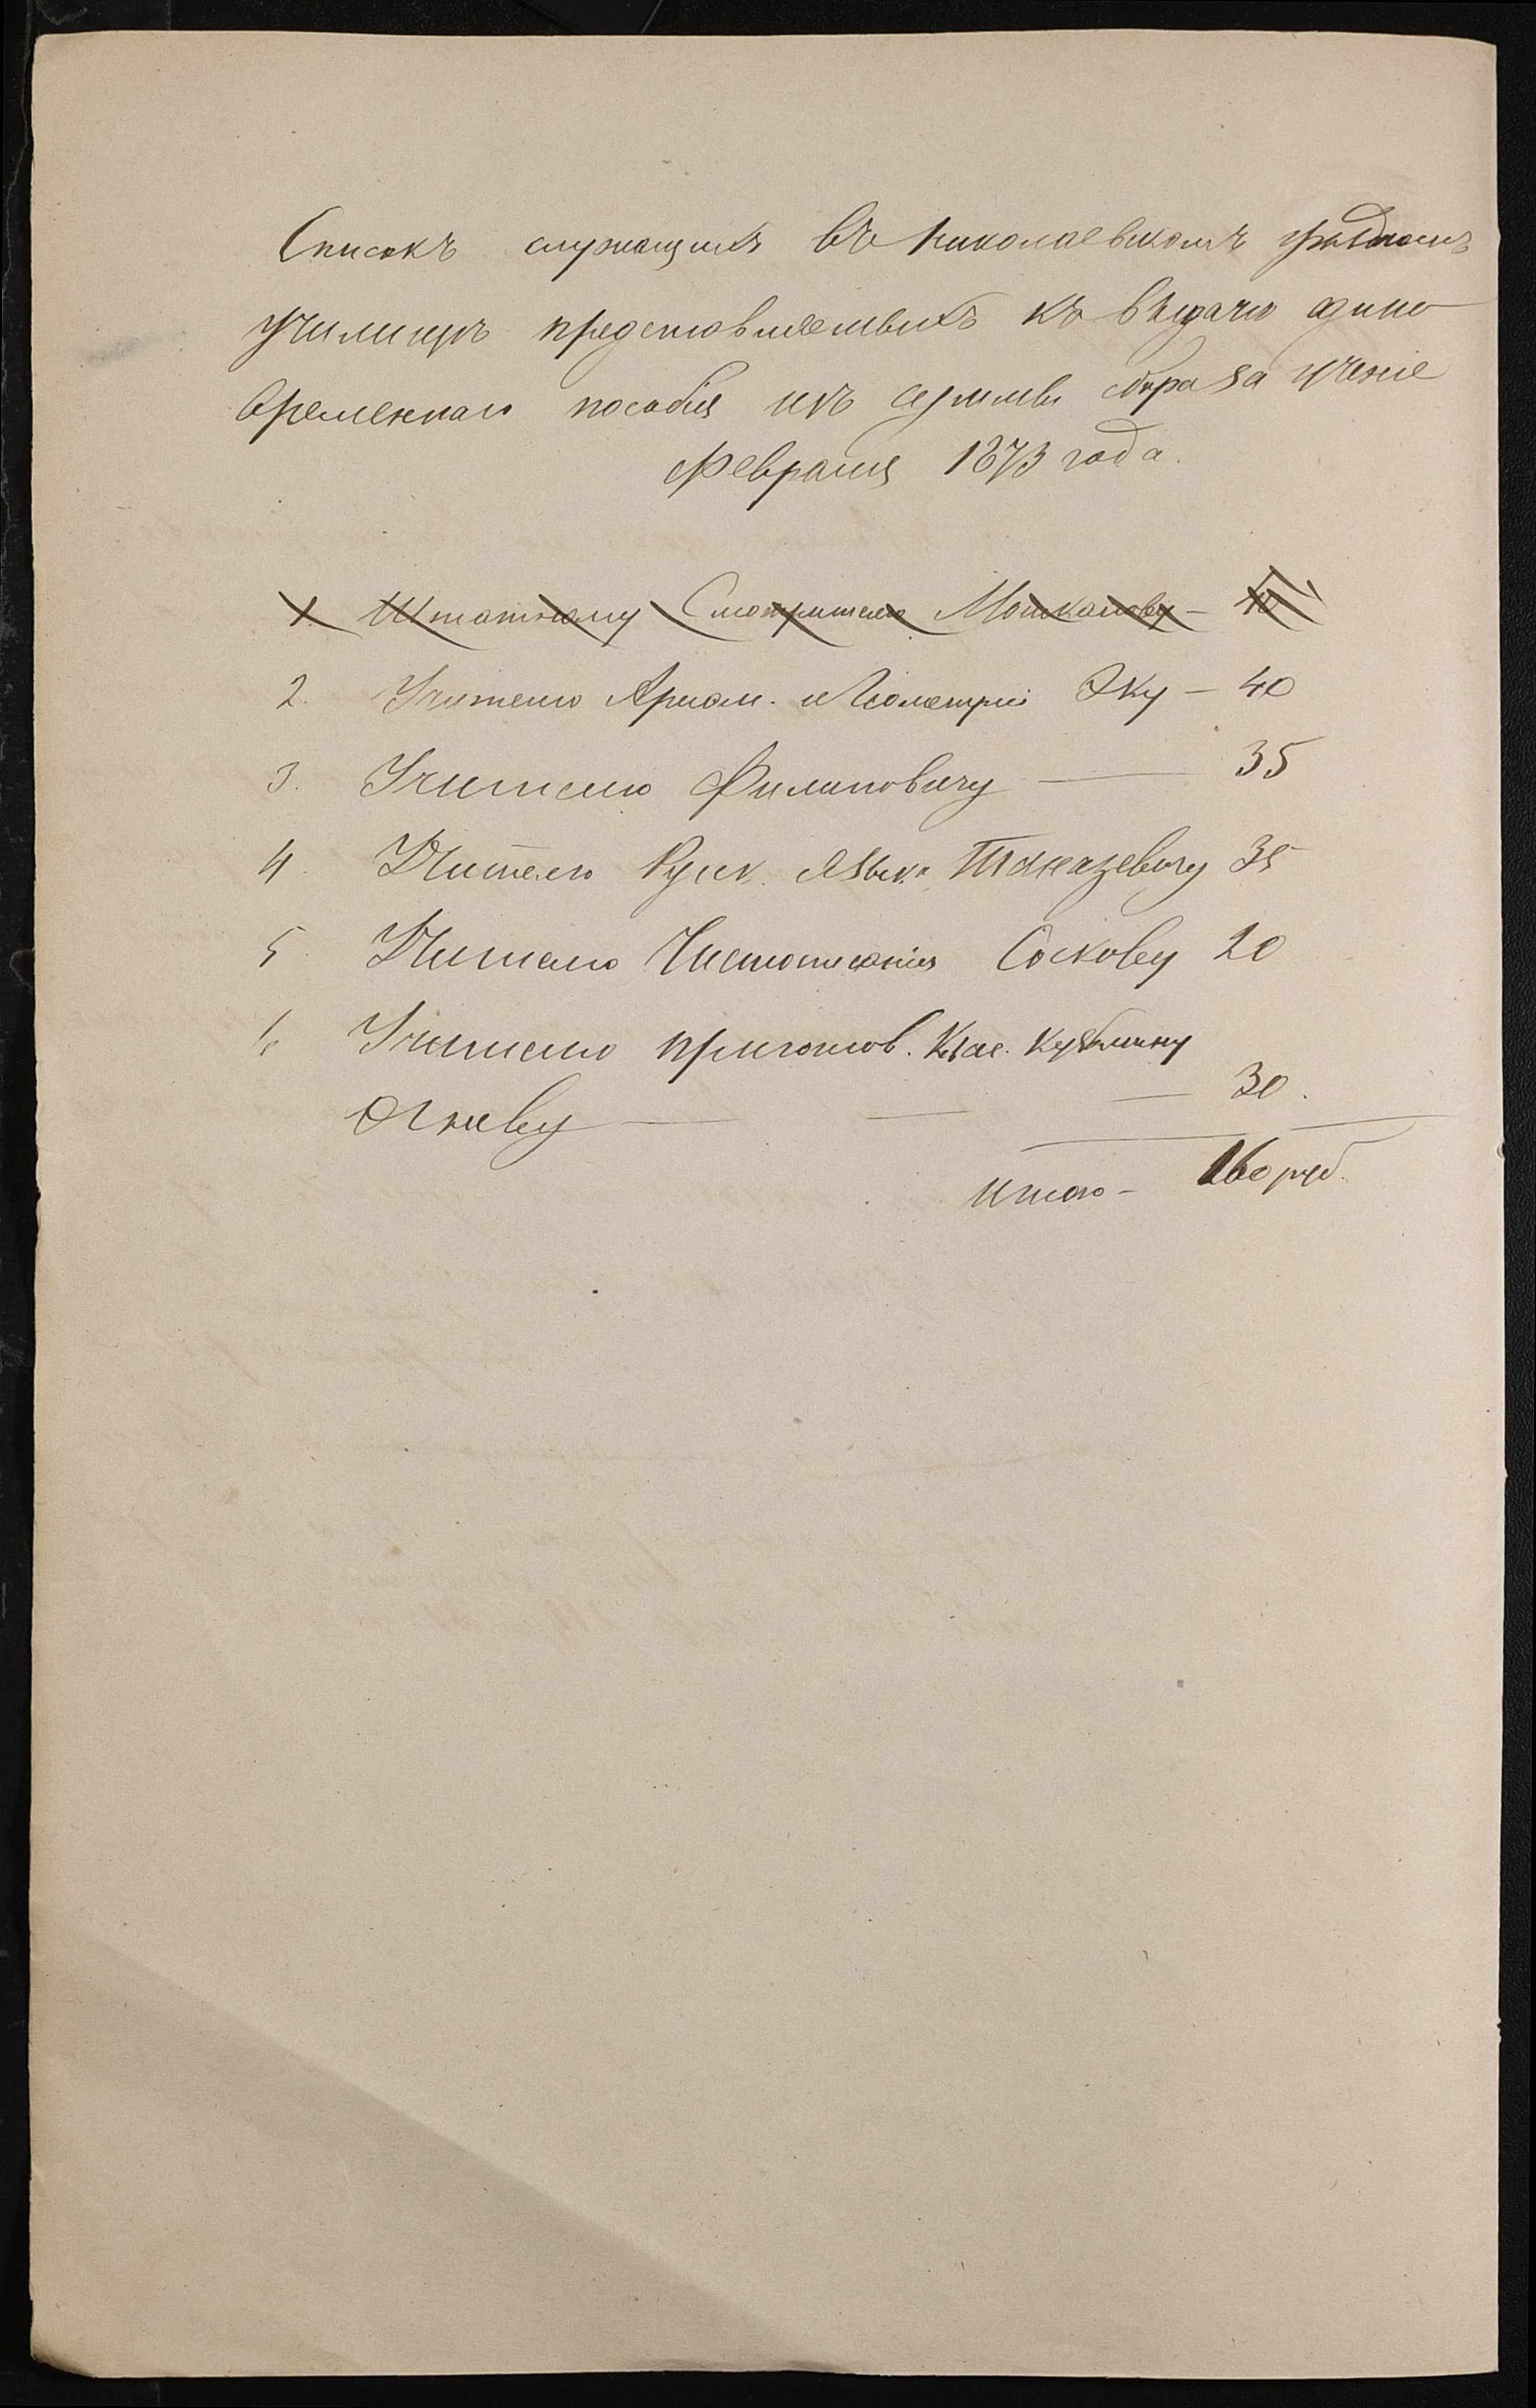 Списокъ служащихъ въ Николаевскомъ уѣздномъ
училищѣ представляемыхъ къ выдачи едино
временнаго пособія изъ суммы сбора за ученіе
Февраля 1873 года.
1. Штатному Смотрителю Мошкалову - 40
2. Учителю Арифм. и Геометріи Эку - 40
3. Учителю Филиповичу — 35
4 Учителю Руск. Языка 35
5 Учителю Чистописанія Соскову 20
6 Учителю приготов. Клас.
Огневу — — — 30.
Итого - 160 руб.